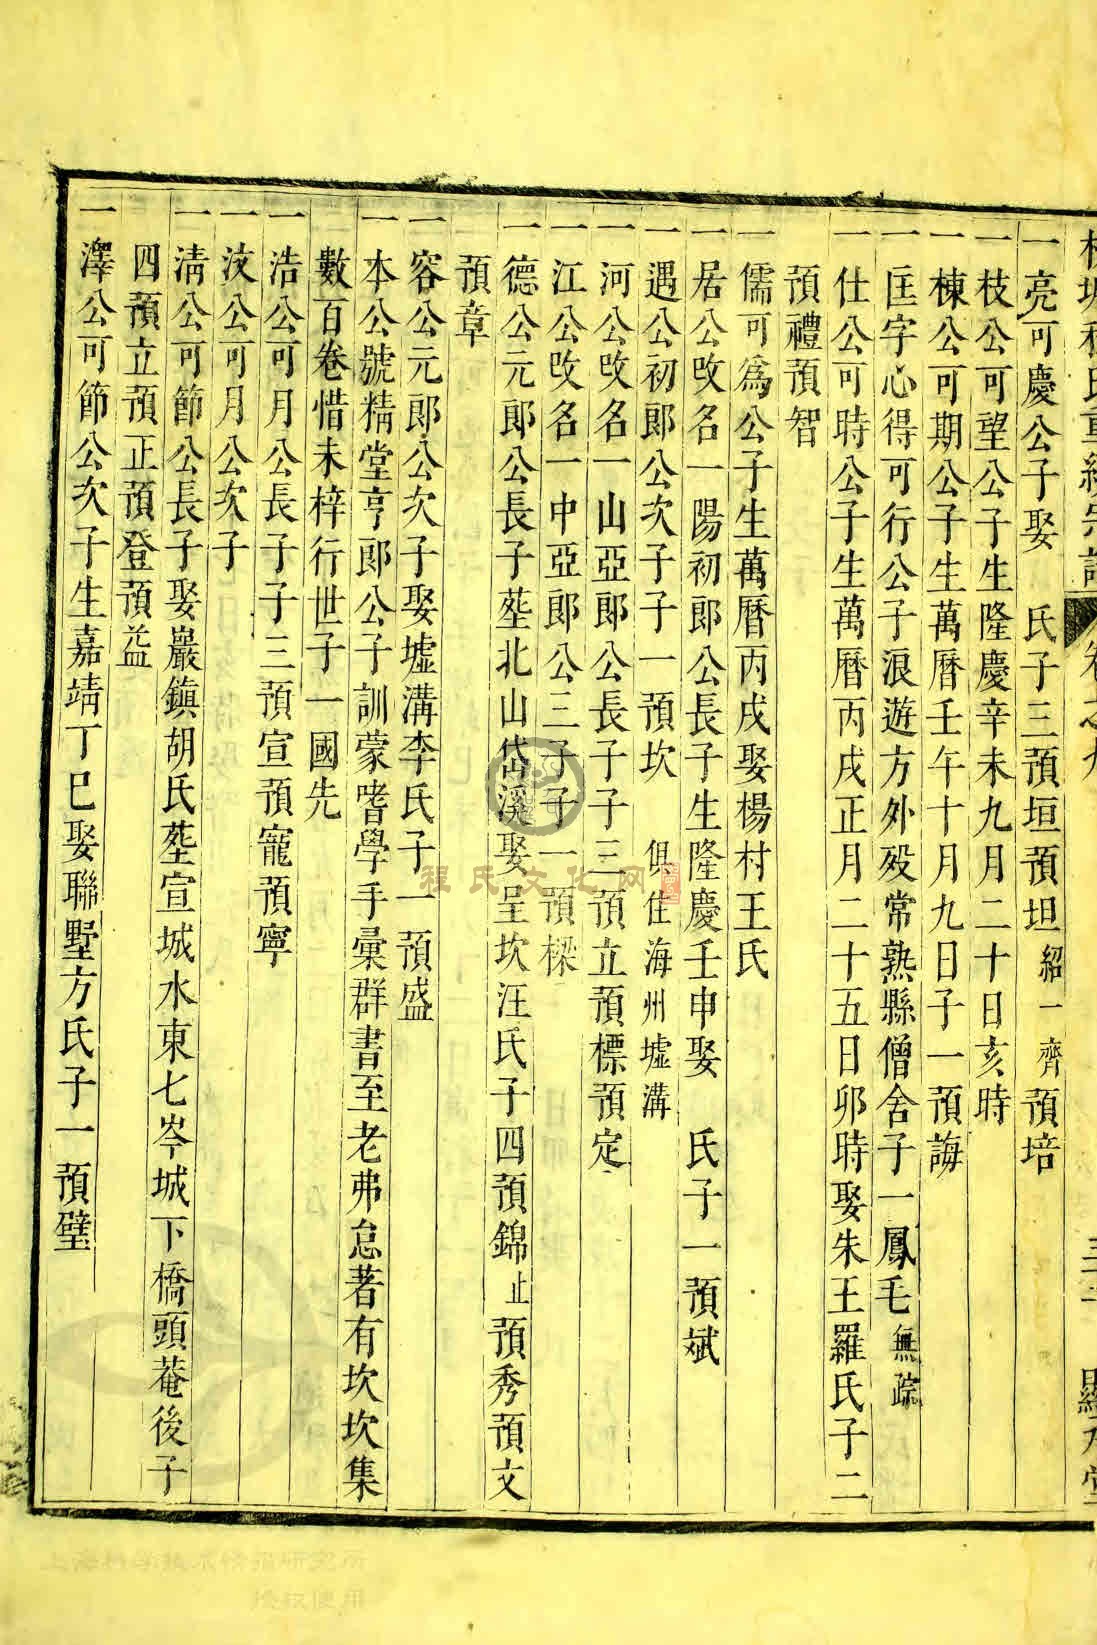 一亮可慶公子娶　氏子三預垣預坦紹一齊預培
一枝公可望公子生隆慶辛未九月二十日亥時
一棟公可期公子生萬曆壬午十月九日子一預誨
一匡字心得可行公子浪遊方外歿常熟縣僧舍子一鳳毛無疏
一仕公可時公子生萬曆丙戌正月二十五日卯時娶朱王羅氏子二
預禮預智
一儒可為公子生萬曆丙戌娶楊村王氏
一居公改名一陽初郎公長子生隆慶壬申娶　氏子一預斌
一遇公初郎公次子子一預坎　俱住海州墟溝
一河公改名一山亞郎公長子子三預立預標預定
一江公改名一中亞郎公三子子一預樑
一德公元郎公長子塟北山岱溪娶呈坎汪氏子四預錦止預秀預文
預章
一容公元郎公次子娶墟溝李氏子一預盛
一本公號精堂亨郎公子訓蒙嗜學手彙群書至老弗怠著有坎坎集
數百卷惜未梓行世子一國先
一浩公可月公長子子三預宣預寵預寧
一汝公可月公次子
一淸公可節公長子娶巖鎮胡氏塟宣城水東七岑城下橋頭菴後子
四預立預正預登預益
一澤公可節公次子生嘉靖丁巳娶聯墅方氏子一預璧
程氏文化网
上海科学技术情报研究所
授权使用